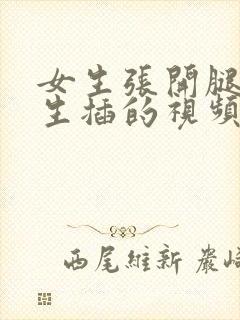 女生張開腿
生插的視頻
西尾維新 嚴崎